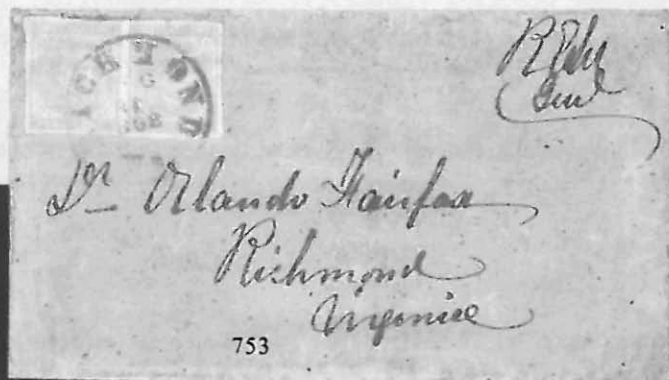 RICHMOND
R E Lee
Genl
Dr Orlando Fairfax
Richmond
Virginia
753